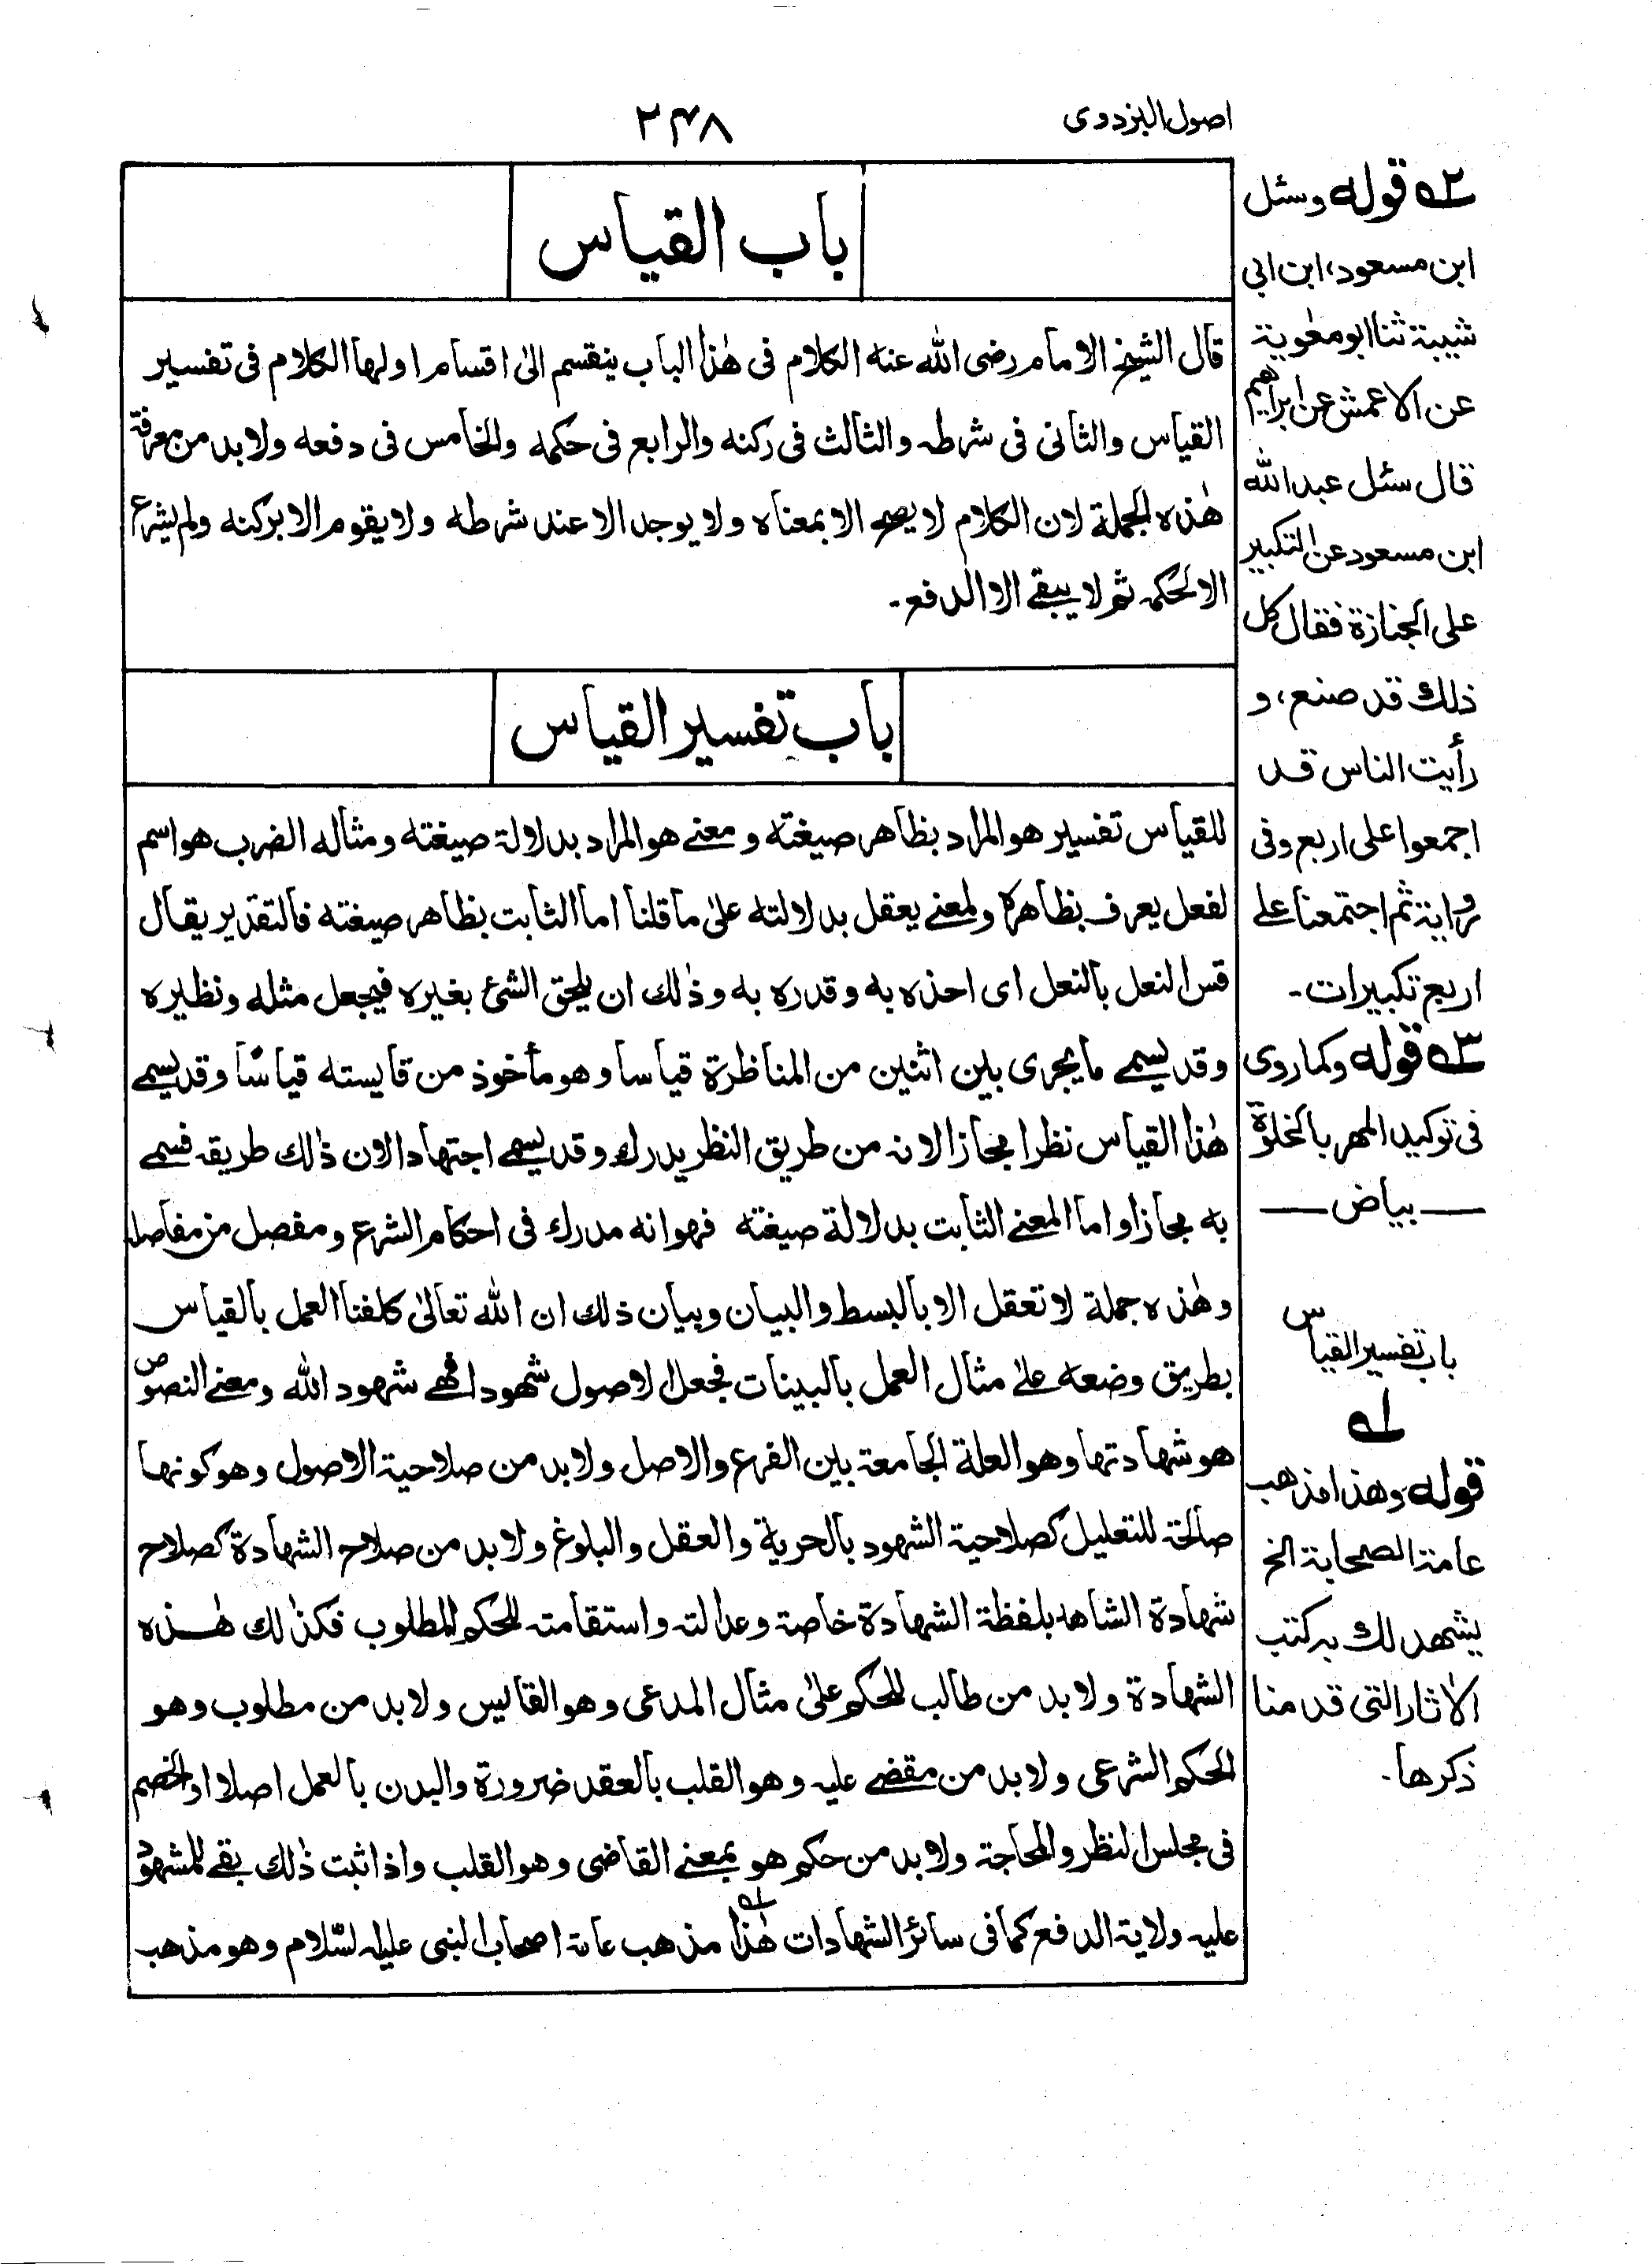 اصول البزدوی
۲۴۸
باب القياس
قال الشيخ الامام رضى الله عنه الكلام فى هٰذا الباب ينقسم الىٰ اقسام اولها الكلام فى تفسير
القياس والثانى فى شرطه والثالث فى ركنه والرابع فى حكمه والخامس فى دفعه ولابد من معرفة
هٰذه الجملة لان الكلام لا يصح الا بمعناه ولا يوجد الا عند شرطه ولا يقوم الا بركنه ولم يشرع
الا لحكمه ثم لا يبقے الا الدفع۔
باب تفسير القياس
للقياس تفسير هو المراد بظاهر صيغته و معنے هو المراد بدلالة صيغته ومثاله الضرب هو اسم
لفعل يعرف بظاهره ولمعنے يعقل بدلالته علىٰ ما قلنا اما الثابت بظاهر صيغته فالتقدير يقال
قس النعل بالنعل اى احذه به وقدره به وذٰلك ان يلحق الشئ بغيره فيجعل مثله ونظيره
وقد يسمے ما يجرى بين اثنين من المناظرة قياسا وهو مأخوذ من قايسته قياسًا وقد يسمے
هٰذا القياس نظرا مجازا لانه من طريق النظر يدرك وقد يسمے اجتهادا لان ذٰلك طريقه فسمے
به مجازا واما المعنے الثابت بدلالة صيغته فهو انه مدرك فى احكام الشرع ومفصل من مفاصله
وهٰذه جملة لا تعقل الا بالبسط والبيان وبيان ذلك ان الله تعالىٰ كلفنا العمل بالقياس
بطريق وضعه علىٰ مثال العمل بالبينات فجعل الاصول شهودا فهے شهود الله ومعنے النصوص
هو شهادتها وهو العلة الجامعة بين الفرع والاصل ولابد من صلاحية الاصول وهو كونها
صالحة للتعليل كصلاحية الشهود بالحرية والعقل والبلوغ ولابد من صلاح الشهادة كصلاح
شهادة الشاهد بلفظة الشهادة خاصة وعدالته واستقامته للحكم المطلوب فكذٰلك هٰذه
الشهادة ولابد من طالب للحكم علىٰ مثال المدعى وهو القايس ولابد من مطلوب وهو
الحكم الشرعى ولابد من مقضے عليه وهو القلب بالعقد ضرورة والبدن بالعمل اصلا او الخصم
فى مجلس النظر والمحاجة ولابد من حكم هو بمعنے القاضى وهو القلب واذا ثبت ذٰلك بقے للمشهود
عليه ولاية الدفع كما فى سائر الشهادات هٰذا ؎۱ مذهب عامة اصحاب النبى عليه السّلام وهو مذهب
؎۲ قوله وسئل
ابن مسعود، ابن ابى
شيبة ثنا ابو معٰوية
عن الاعمش عن ابراهيم
قال سئل عبد الله
ابن مسعود عن التكبير
على الجنازة فقال كل
ذلك قد صنع، و
رأيت الناس قد
اجمعوا على اربع وفى
رواية ثم اجتمعنا على
اربع تكبيرات۔
؎۳ قوله وكما روى
فى توكيد المهر بالخلوة
بياض
باب تفسير القياس
؎۱
قوله وهذا مذهب
عامة الصحابة الخ
يشهد لك به كتب
الاٰثار التى قدمنا
ذكرها۔